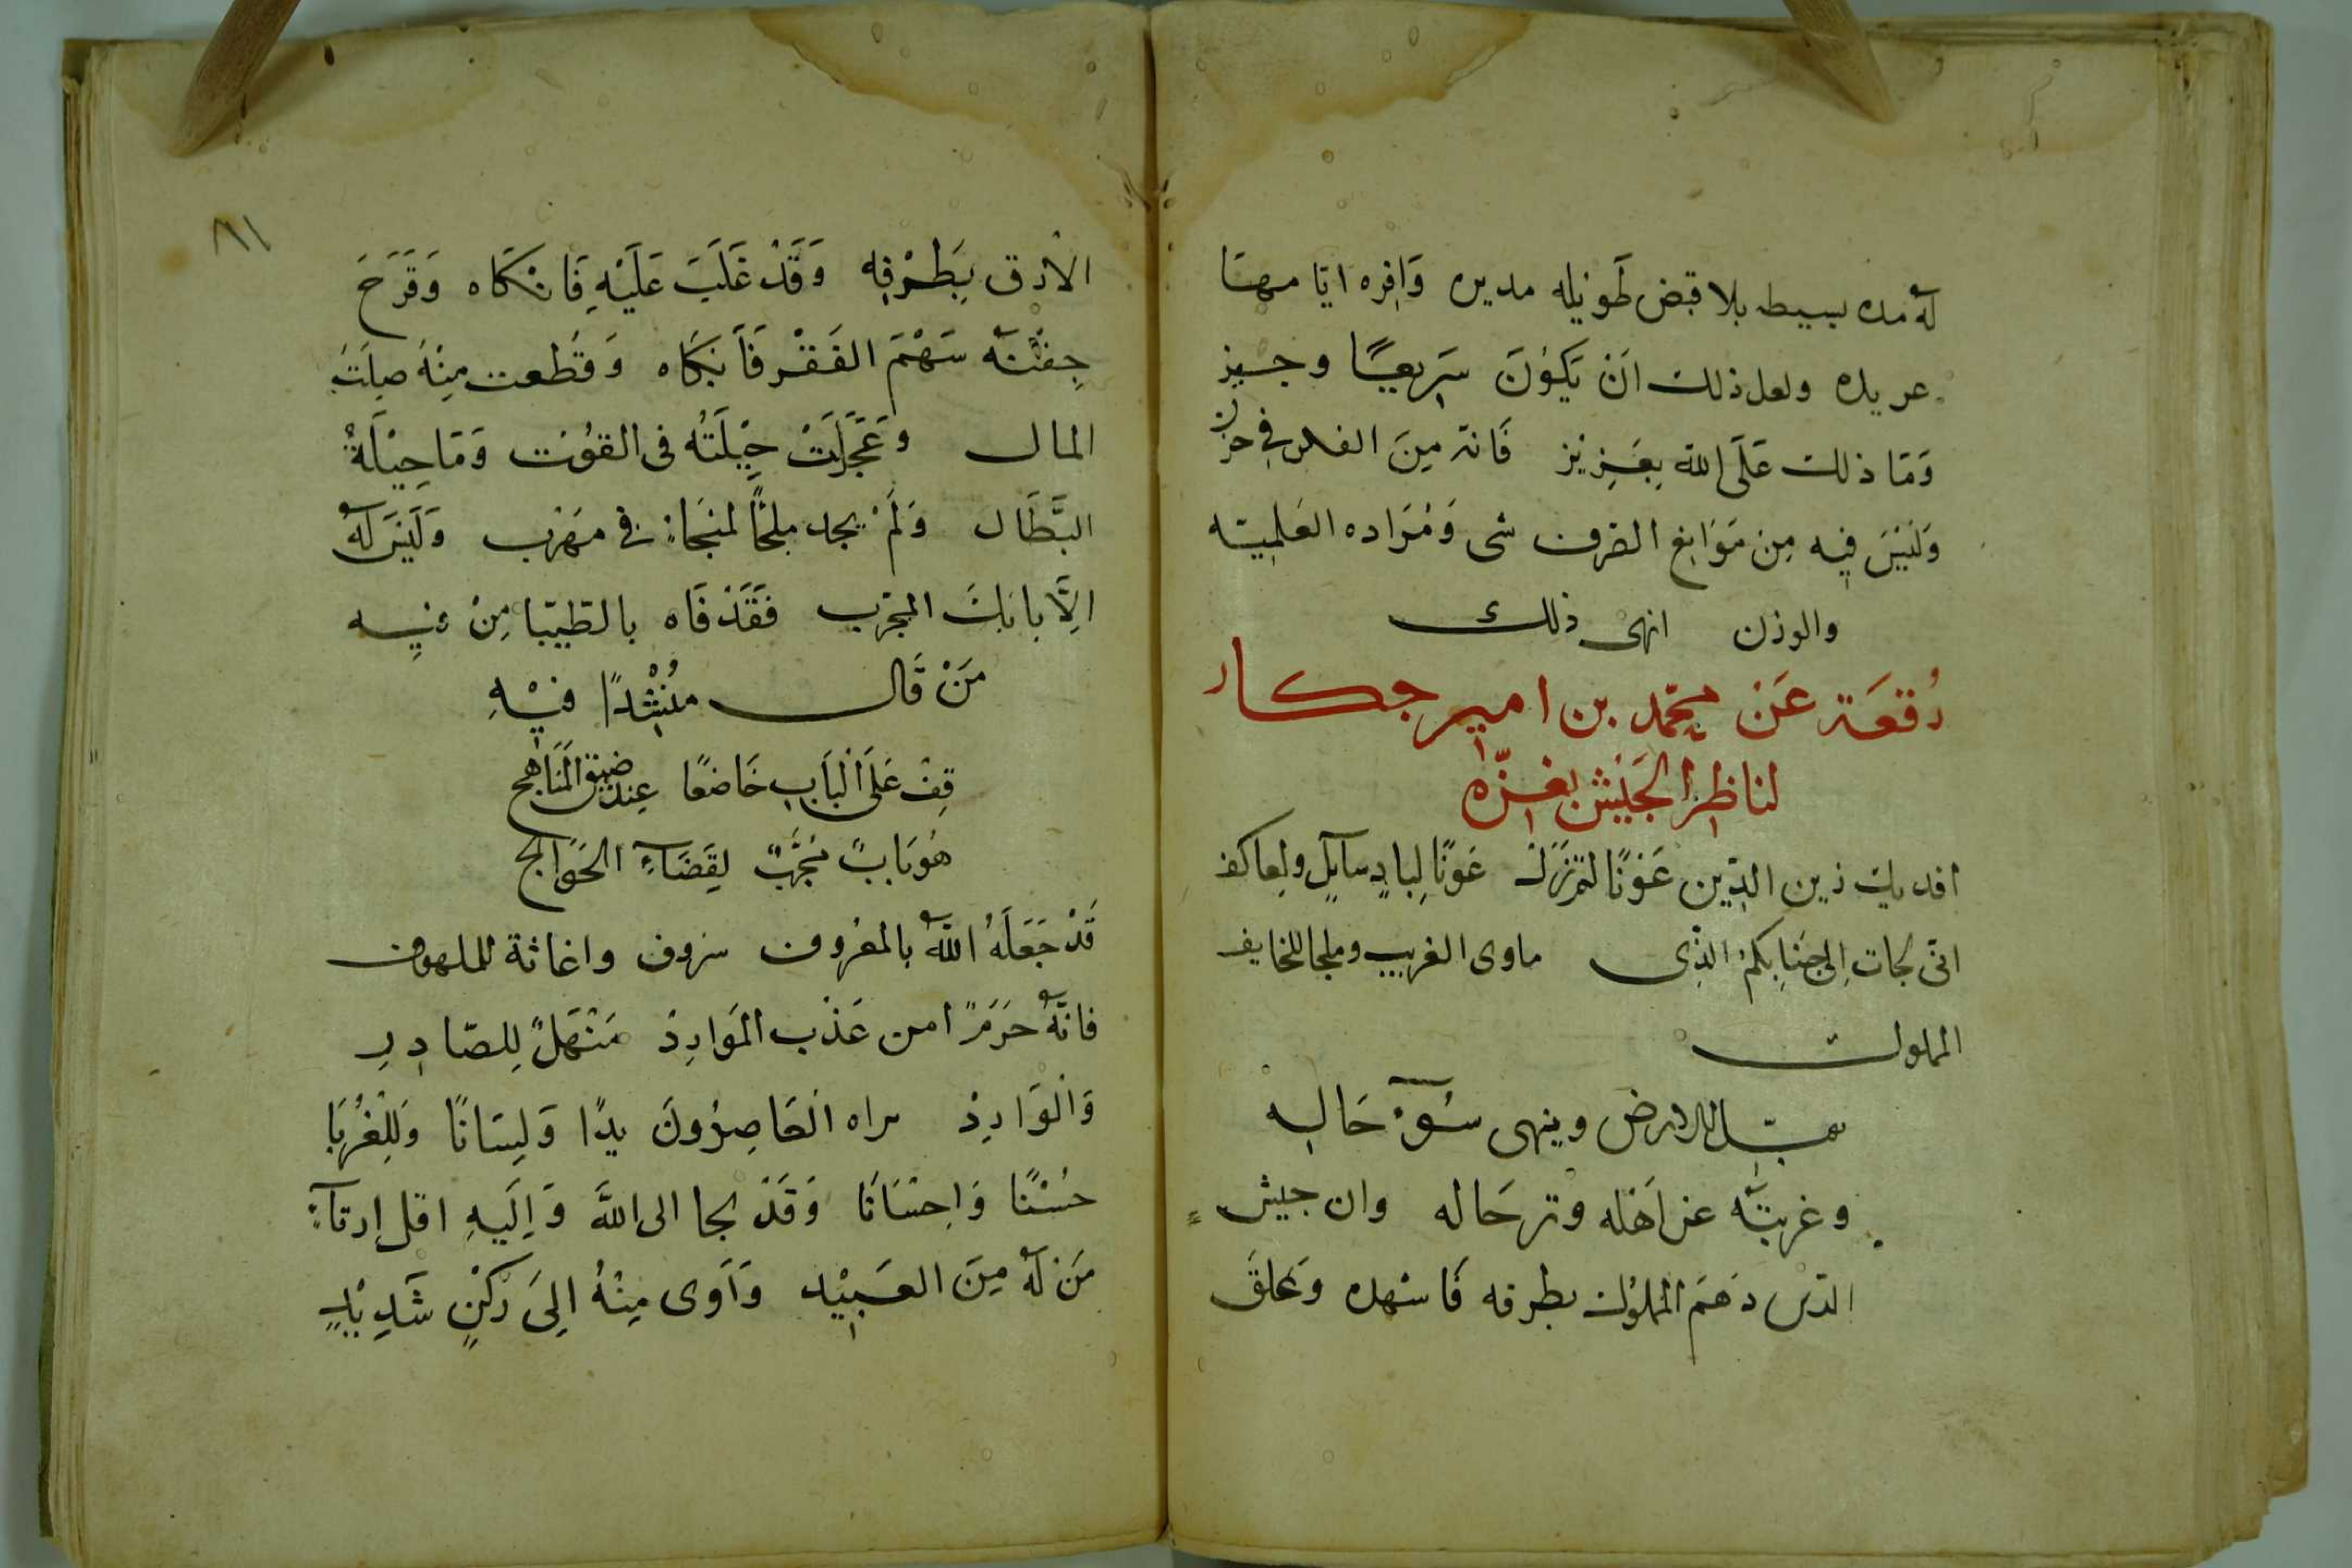 له مده بسيطه بلا قبض طويله مديره وافره ايامها
عريده ولعل ذلك ان يكون سريعا وجيز
وما ذلك على الله بعزيز فانه من الفلس في حرز
وليس فيه من موانع الصرف شي ومراده العلميه
والوزن انهى ذلك
رقعة عن محمد بن امير جكار
لناظر الجيش بغزه
افديك زين الدين عونا لم تزل عونا لباد سايل ولعاكف
اني لجات الى جنابكم الذي ماوى الغريب وملجا للخايف
المملوك
يقبل الارض وينهى سوء حاله
وغربته عن اهله وترحاله وان جيش
الذي دهم المملوك بطرفه فاسهده وعلق
٨١
الارق بطرفه وقد غلب عليه فانكاه وقرح
جفنه سهم الفقر فابكاه وقطعت منه صلت
المال وعجزت حيلته في القوت وما حيلة
البطال ولم يجد ملجا لمنجاء في مهرب وليس له
الا بابك المجرب فقد فاه بالطيبا من فيه
من قال منشدا فيه
قف على الباب خاضعا عند ضيق المناهج
هو باب مجرب لقضاء الحوائج
قد جعله الله بالمعروف سروف واغاثة للملهوف
فانه حرم امن عذب الموارد منهل للصادر
والوارد يراه القاصرون يدا ولسانا وللغربا
حسنا واحسانا وقد لجا الى الله واليه اقل ارقاء
من له من العبيد واوى منه الى ركن شديد